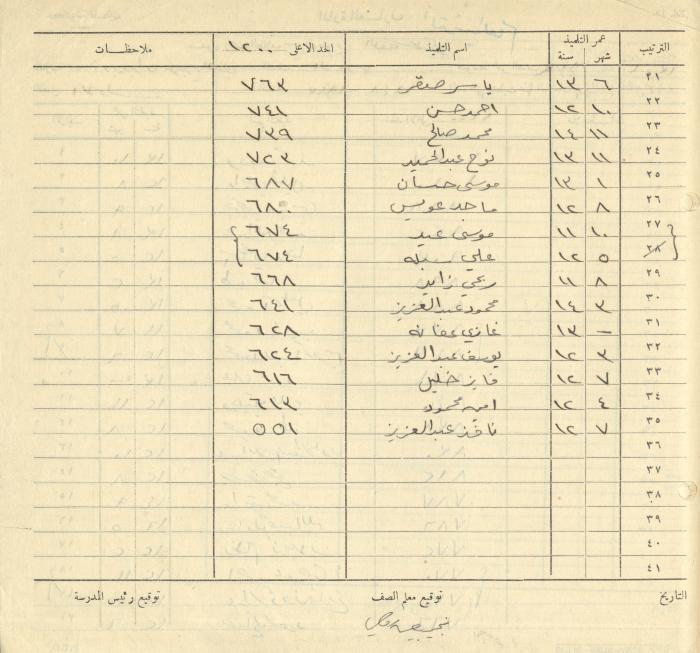 الترتيب عمر التلميذ شهر سنة اسم التلميذ الحد الاعلى ١٢٠٠ ملاحظات
٢١ ٦ ١٣ ياسر صقر ٧٦٣
٢٢ ١٠ ١٢ احمد حسن ٧٤١
٢٣ ١١ ١٤ محمد صالح ٧٣٩
٢٤ ١١ ١٣ نوح عبد الحميد ٧٢٣
٢٥ ١ ١٣ موسى حسان ٦٨٧
٢٦ ٨ ١٢ ماجد عويس ٦٨٠
٢٧ ١٠ ١١ موسى عيد ٦٧٤
٢٨ ٥ ١٢ علي ٦٧٤
٢٩ ٨ ١١ ربحي زايد ٦٦٨
٣٠ ٣ ١٤ محمود عبد العزيز ٦٤١
٣١ — ١٣ غازي عفانه ٦٢٨
٣٢ ٣ ١٢ يوسف عبد العزيز ٦٢٤
٣٣ ٧ ١٢ فايز خليل ٦١٦
٣٤ ٤ ١٢ امين محمود ٦١٣
٣٥ ٧ ١٢ نافذ عبد العزيز ٥٥١
٣٦
٣٧
٣٨
٣٩
٤٠
٤١
التاريخ توقيع معلم الصف توقيع رئيس المدرسة